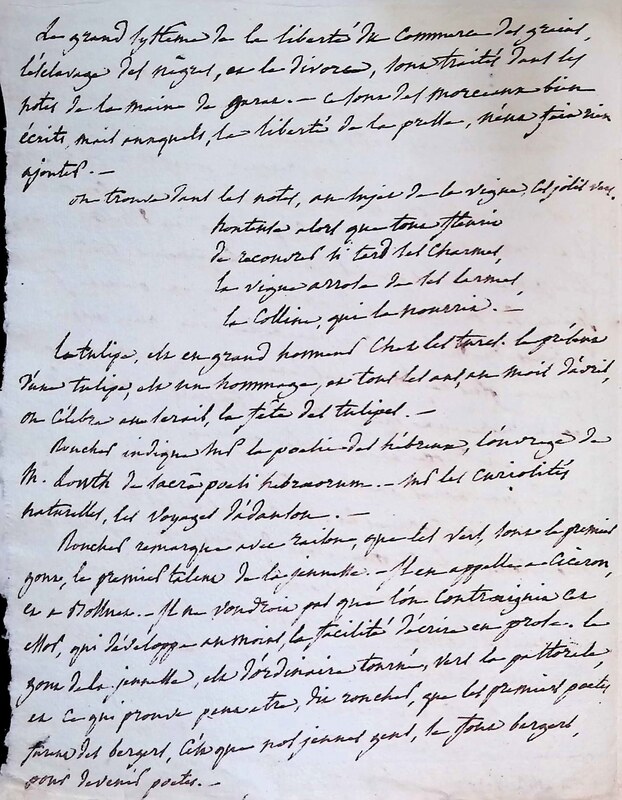 Le grand systême de la liberté du commerce des grains,
l'esclavage des nègres, et le divorce, sont traités dans les
notes de la main de garat. — ce sont des morceaux bien
écrits, mais auxquels, la liberté de la presse, n'eut fait rien
ajouter. —
on trouve dans les notes, au sujet de la vigne, ces jolis vers.
honteuse alors que tout fleurit
de recouvrer si tard ses charmes,
la vigne arrose de ses larmes
la colline, qui la nourrit. —
la tulipe, est en grand honneur chez les turcs. le présent
d'une tulipe, est un hommage, et tous les ans, au mois d'avril,
on célèbre au serail, la fête des tulipes. —
Roucher indique sur la poesie des hébreux, l'ouvrage de
M. Lowth de sacrâ poesi hebraeorum. — sur les curiosités
naturelles, les voyages d'adanson. —
Roucher remarque avec raison, que les vers, sont le premier
gout, le premier talent de la jeunesse. — Il en appelle a Ciceron,
et a Rollin. — Il ne voudroit pas que l'on contraignit cet
essor, qui développe au moins, la facilité d'écrire en prose. le
gout de la jeunesse, est d'ordinaire tourné, vers la pastorale,
et ce qui prouve peut etre, dit roucher, que les premiers poetes
furent des bergers, c'est que nos jeunes gens, se font bergers,
pour devenir poetes. —